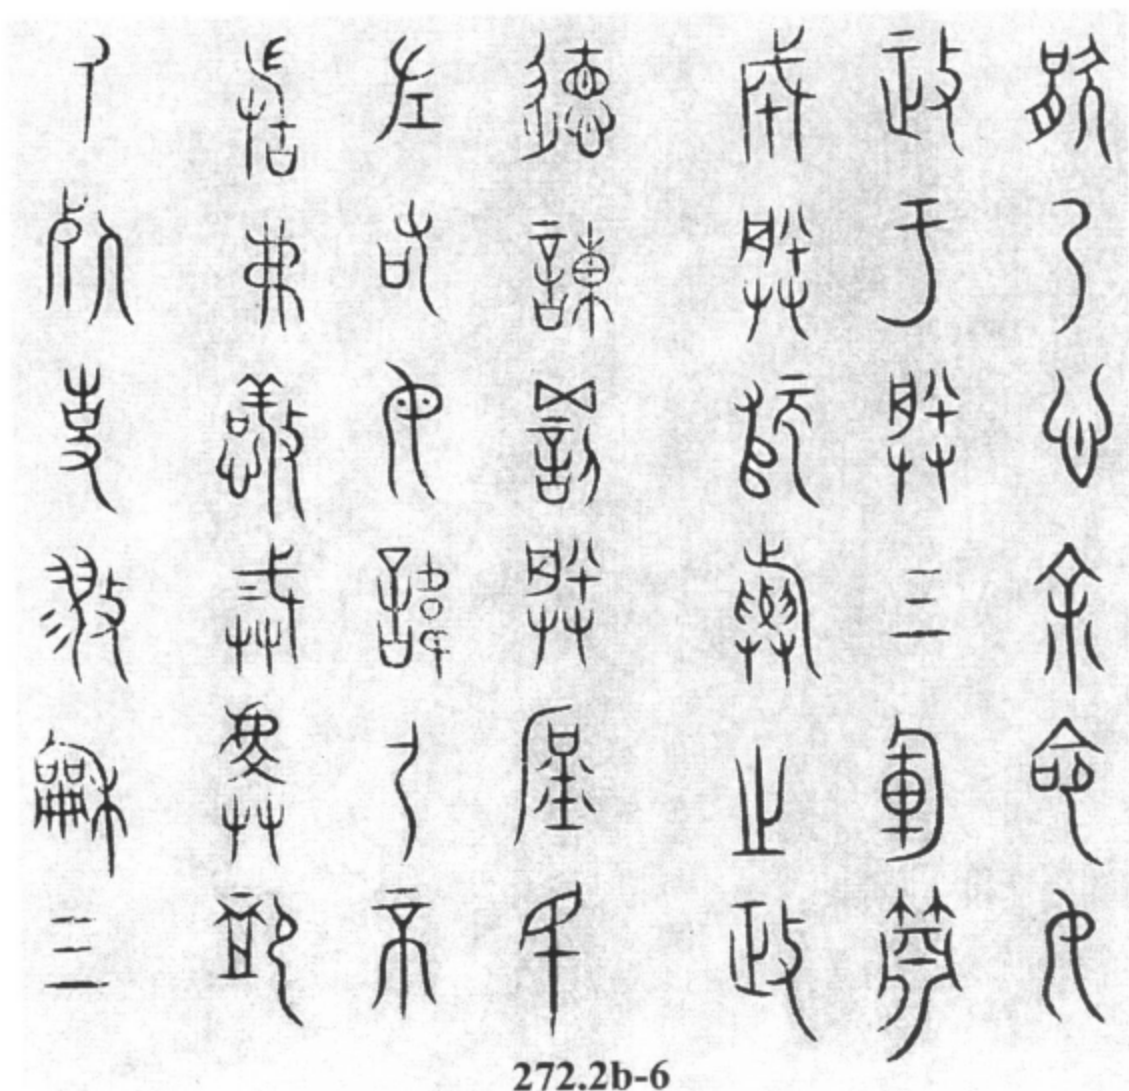 猒乃心余命女
政于朕三軍肅
成朕師旟之政
德諫罰朕庶民
左右毋諱尸不
敢弗憼戒虔卹
氒死事戮龢三
272.2b-6